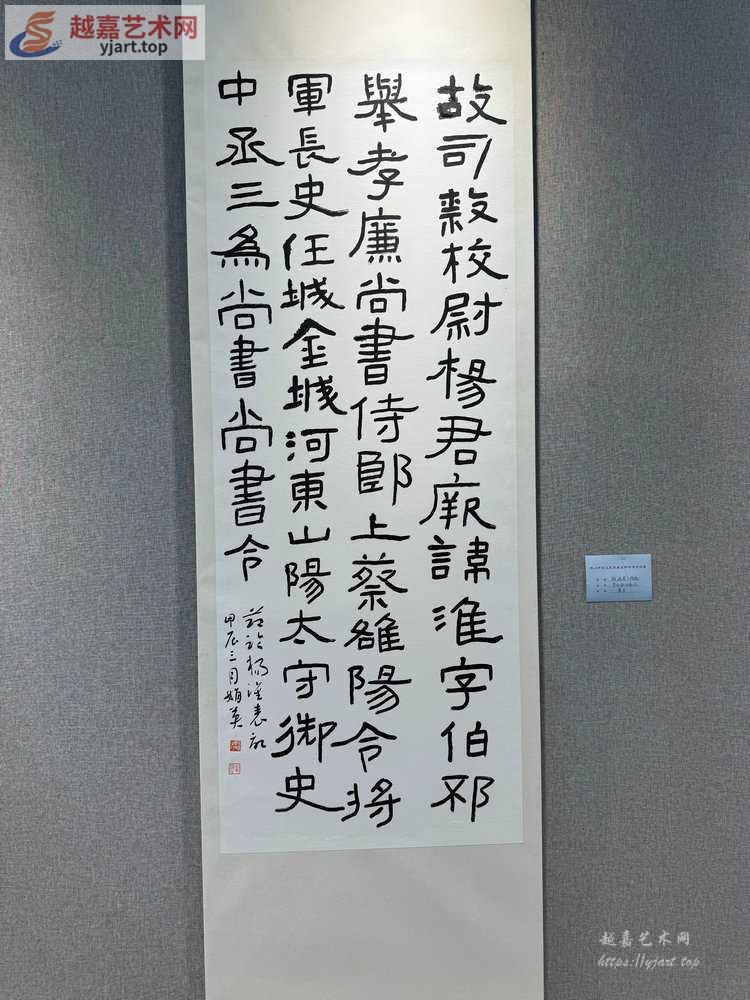 越嘉艺术网
yjart.top
故司隸校尉楊君厥諱淮字伯邳
舉孝廉尚書侍郎上蔡雒陽令將
軍長史任城金城河東山陽太守御史
中丞三為尚書尚書令
節臨楊淮表記
甲辰三月娟英
越嘉艺术网
https://yjart.top